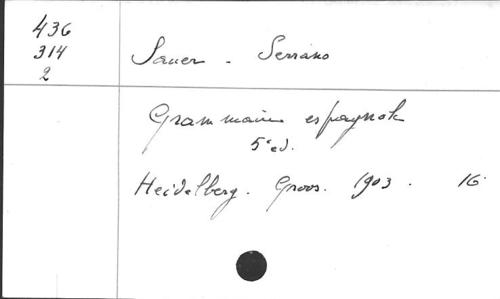 436
314
2
Sauer - Serrano
Grammaire espagnole
5e ed.
Heidelberg. Groos. 1903. 16